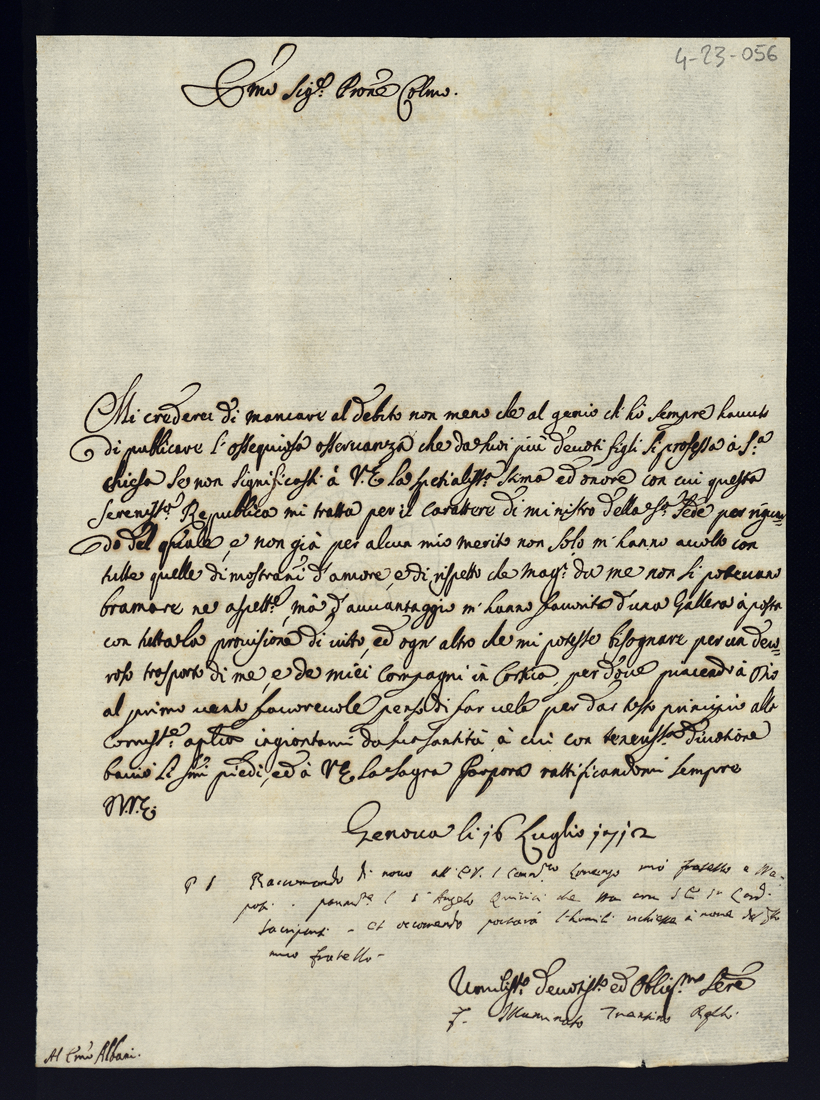 4-23-056
Emo Sigr. Prone Colmo.
Mi crederei di mancare al debito non meno che al genio ch'hò sempre havuto
di publicare l'ossequiosa osservanza che da suoi più devoti figli si professa à Sta.
chiesa se non significassi à V.E. la specialissma. stima ed onore con cui questa
Serenissa. Republica mi tratta per il carattere di ministro della Sta. Sede per rigua-
do del quale, e non già per alcun mio merito non solo m'hanno accolto con
tutte quelle dimostranze d'amore, e di rispetto che da me non si potevano
bramare ne, mà d'avvantaggio m'hanno favorito d'una Gallera à posta
con tutta la provisione di vitto, ed ogn'altro che mi potesse bisognare per un deco-
roso trasporto di me, e de miei Compagni in Corsica, per dove piacendo à Dio
al primo vento favorevole penso di far vela per dar tosto principio alla
ingiontami da sua santità, à cui con divotione
bacio li smi piedi, ed à V.E. la Sagra Porpora rattificandomi sempre
D.V.E.
Genova li 16 Luglio 1712
P S Raccomando di novo all'E.V. Lorenzo mio fratello
Angelo che sta con Card.
portarà l'humili à nome
mio fratello
Umilisso. devotisso. ed Obligmo. Sere
F. Illuminato
Al Emo Albani.